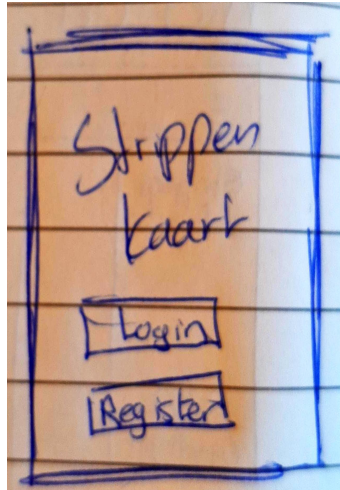 Strippen
kaart
Login
Register